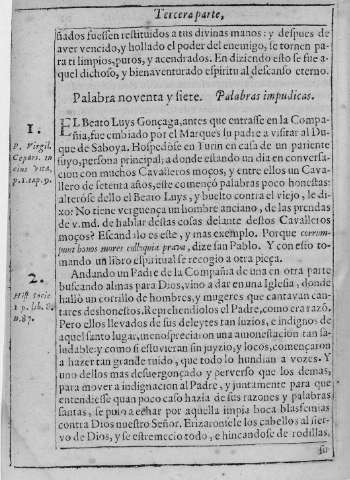 Tercera parte,
ñados fuessen restituidos a tus divinas manos: y despues de
aver vencido, y hollado el poder del enemigo, se tornen pa-
ra ti limpios, puros, y acendrados. En diziendo esto se fue a-
quel dichoso, y bienaventurado espiritu al descanso eterno.
Palabra noventa y siete. Palabras impudicas.
1.
P. Virgil.
Cepari. in
eius vita,
p. 1. cap. 9.
EL Beato Luys Gonçaga, antes que entrasse en la Compa-
ñia, fue embiado por el Marques su padre a visitar al Du-
que de Saboya. Hospedòse en Turin en casa de un pariente
suyo, persona principal; a donde estando un dia en conversa-
cion con muchos Cavalleros moços, y entre ellos un Cava-
llero de setenta años, este començó palabras poco honestas:
alteròse dello el Beato Luys, y buelto contra el viejo, le di-
xo: No tiene verguença un hombre anciano, de las prendas
de v.md. de hablar destas cosas delante destos Cavalleros
moços? Escandalo es este, y mas exemplo. Porque corrum-
punt bonos mores colloquia prava, dize san Pablo. Y con esto to-
mando un libro espiritual se recogio a otra pieça.
2.
Hist. socie.
1 p. lib. 8.
n. 87.
Andando un Padre de la Compañia de una en otra parte
buscando almas para Dios, vino a dar en una Iglesia, donde
hallò un corrillo de hombres, y mugeres que cantavan can-
tares deshonestos. Reprehendiolos el Padre, como era razõ.
Pero ellos llevados de sus deleytes tan suzios, e indignos de
aquel santo lugar, menospreciaron una amonestacion tan sa-
ludable: y como si estuvieran sin juyzio, y locos, començaron
a hazer tan grande ruido, que todo lo hundian a vozes. Y
uno dellos mas desvergonçado y perverso que los demas,
para mover a indignacion al Padre, y juntamente para que
entendiesse quan poco caso hazia de sus razones y palabras
santas, se puso a echar por aquella impia boca blasfemias
contra Dios nuestro Señor. Erizaronsele los cabellos al sier-
vo de Dios, y se estremecio todo, e hincandose de rodillas,